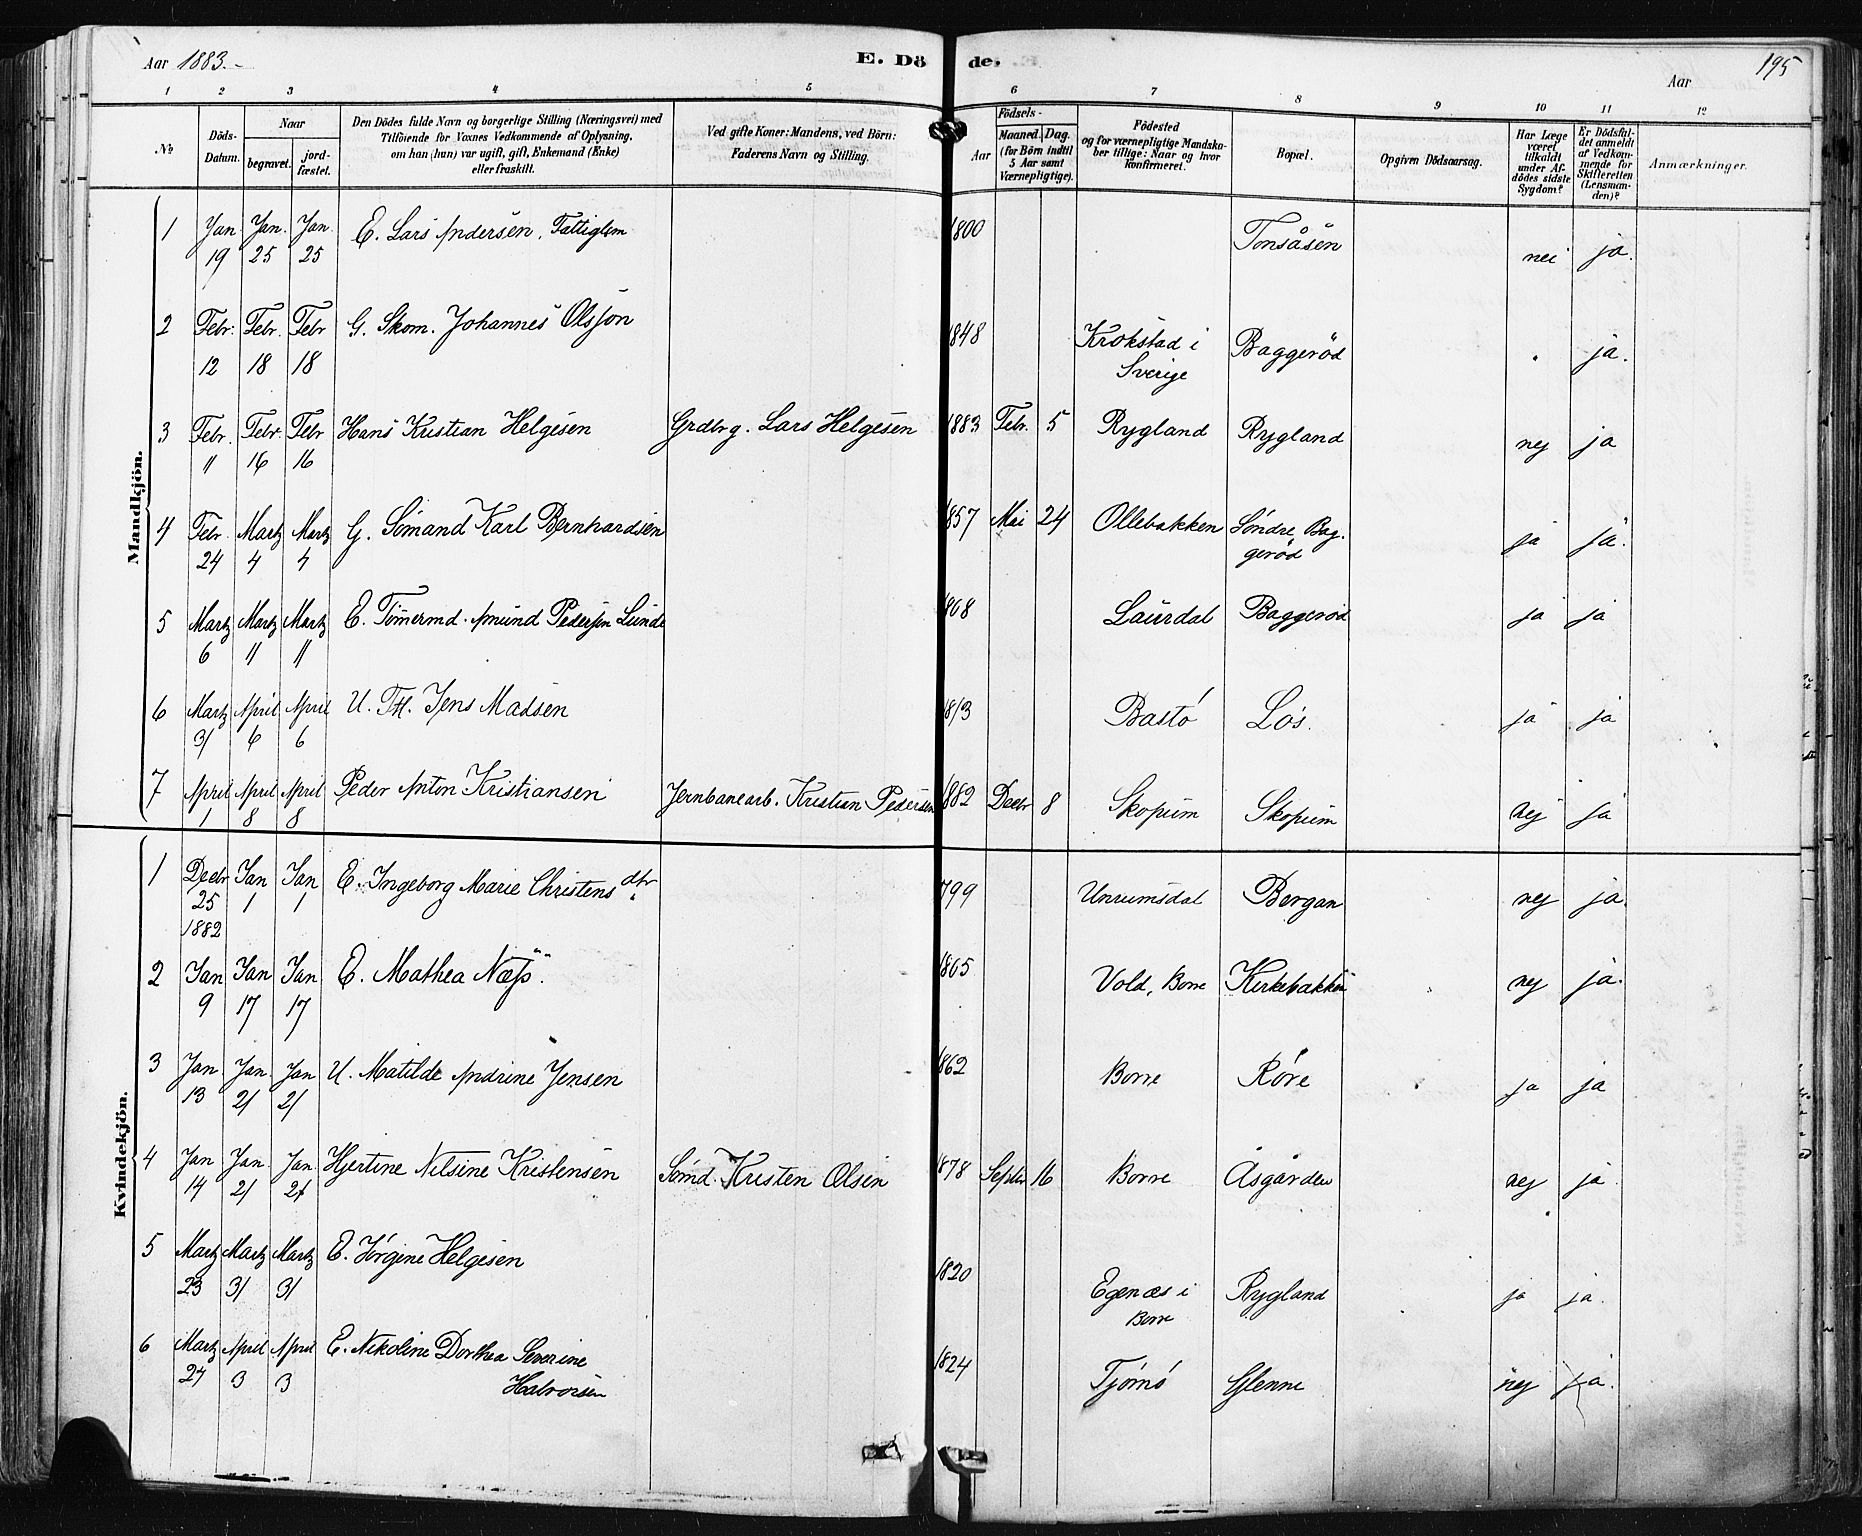 Aar 1883.-
E. Dö de.
Aar
195
1 2 3 4 5 6 7 8 9 10 11 12
No
Döds-Datum.
Naar
begravet.
jord-fæstet.
Den Dödes fulde Navn og borgerlige Stilling (Næringsvei) med
Tilföiende for Voxnes Vedkommende af Oplysning,
om han (hun) var ugift, gift, Enkemand (Enke)
eller fraskilt.
Ved gifte Koner: Mandens, ved Börn:
Faderens Navn og Stilling.
Födsels-
Aar
Maaned. Dag.
(for Börn indtil
5 Aar samt
Værnepligtige).
Födested
og for værnepligtige Mandska-
ber tillige: Naar og hvor
konfirmeret.
Bopæl.
Opgiven Dödsaarsag.
Har Læge
været
tilkaldt
under Af-
dödes sidste
Sygdom?
Er Dödsfal-
det anmeldt
af Vedkom-
mende for
Skifteretten
(Lensman-
den)?
Anmærkninger.
Mandkjön.
1 Jan 19 Jan. 25 Jan 25 E. Lars Andersen, Fattiglem 1800 Tonsåsen nei ja.
2 Febr. 12 Febr. 18 Febr 18 G. Skom. Johannes Olsson 1848 Krokstad i Sverige Baggerød " ja.
3 Febr. 11 Febr. 16 Febr 16 Hans Kristian Helgesen Grdbrg. Lars Helgesen 1883 Febr. 5 Rygland Rygland nej ja
4 Febr. 24 Martz 4 Martz 4 G. Sömand Karl Bernhardsen 1857 Mai 24 Ollebakken Söndre Bag-
gerød ja ja.
5 Martz 6 Martz 11 Martz 11 E. Tömermd. Amund Pedersen Lunde 1808 Laurdal Baggerød ja ja
6 Martz 31 April 6 April 6 U. Jens Madsen 1813 Bastö Lös. ja ja
7 April 1 April 8 April 8 Peder Anton Kristiansen Jernbanearb. Kristian Pedersen 1882 Decbr 8 Skopum Skopum nej ja
Kvindekjön.
1 Decbr 25 1882 Jan 1 Jan 1 E. Ingeborg Marie Christensdtr. 1799 Bergan nej ja.
2 Jan 9 Jan 17 Jan 17 E. Mathea Næss. 1805 Vold, Borre Kirkebakken nej ja.
3 Jan 13 Jan 21 Jan 21 U. Matilde Andrine Jensen 1862 Borre Røre ja ja
4 Jan 14 Jan. 21 Jan. 21 Hjertine Nilsine Kristensen Sömd. Kristen Olsen 1878 Septbr 16 Borre Åsgården nej ja
5 Martz 23 Martz 31 Martz 31 E. Jörgine Helgesen 1820 Egenæs i
Borre Rygland ja ja.
6 Martz 24 April 3 April 3 E. Nikoline Dorthea Severine
Halvorsen 1824 Tjömö Glenne nej ja.